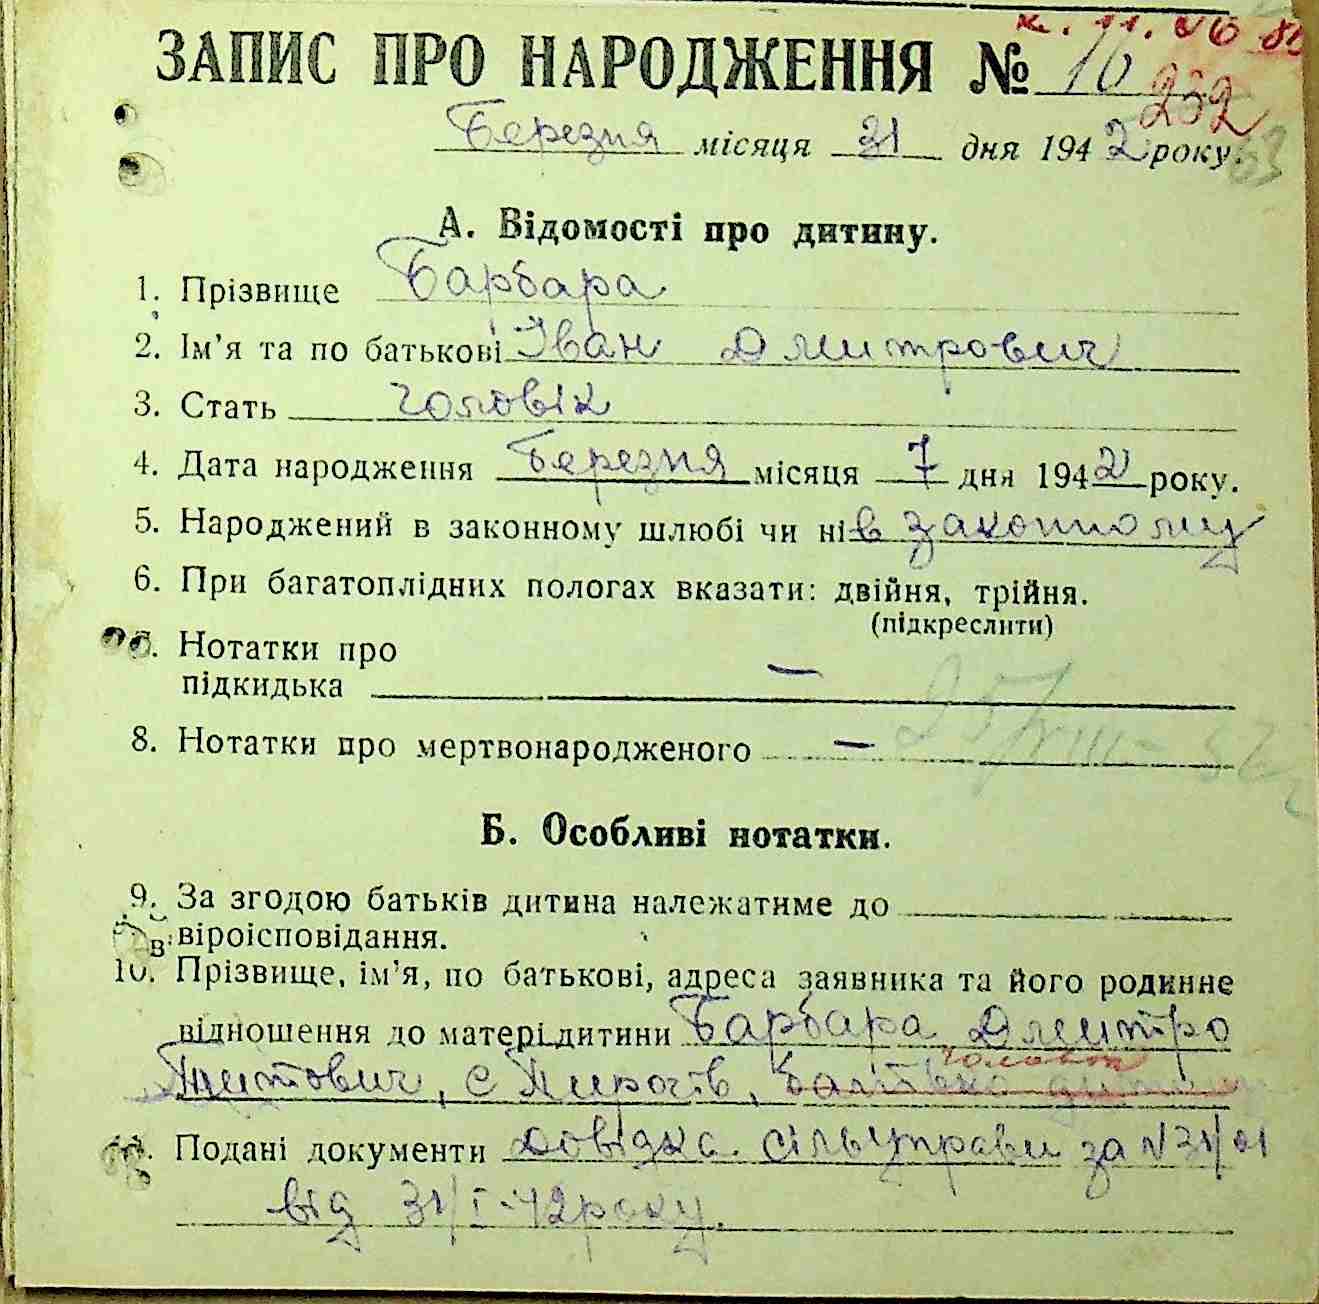 ЗАПИС ПРО НАРОДЖЕННЯ № 16
232
Березня місяця 31 дня 1942 року.
63
А. Відомості про дитину.
1. Прізвище Барбара
2. Ім'я та по батькові Іван Дмитрович
3. Стать чоловік
4. Дата народження Березня місяця 7 дня 1942 року.
5. Народжений в законному шлюбі чи ні в законному
6. При багатоплідних пологах вказати: двійня, трійня.
(підкреслити)
Нотатки про
підкидька —
8. Нотатки про мертвонародженого —
Б. Особливі нотатки.
9. За згодою батьків дитина належатиме до
віроісповідання.
10. Прізвище, ім'я, по батькові, адреса заявника та його родинне
відношення до матері дитини Барбара Дмитро
чоловік
Титович, с Пирогів,
Подані документи Довідка сільуправи за №31/01
від 31/I-42 року.